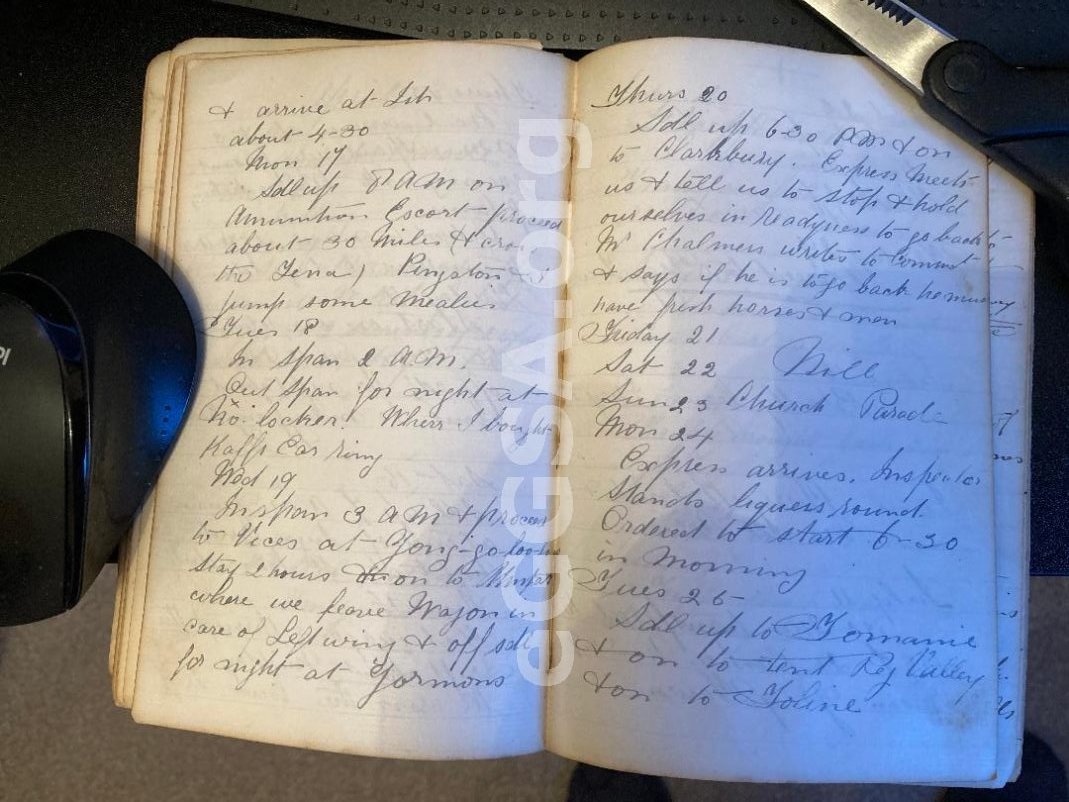 & arrive at
about 4-30
Mon 17
Sdl up 8 AM on
Amunition Escort proceed
about 30 Miles & cros
the
jump some Mealies
Tues 18
In span 2 A.M.
Out Span for night at
Where I bought
Kaffr Ear ring
Wed 19
Inspan 3 AM & proceed
to Vices at
stay 2 hours on to
where we leave Wagon in
care of Left wing & off sdl
for night at Gormons
Thurs 20
Sdl up 6-30 AM & on
to Clarkbury. Express meets
us & tell us to stop & hold
ourselves in readyness to go back to
Mr Chalmers writes to Commt
& says if he is to go back he must
have fresh horses & men
Friday 21
Sat 22 Nill
Sun 23 Church Parade
Mon 24
Express arrives. Inspector
Stands liquers round.
Ordered to start 6-30
in Morning
Tues 25
Sdl up to
& on to tent Valley
& on to
cGGSA.org